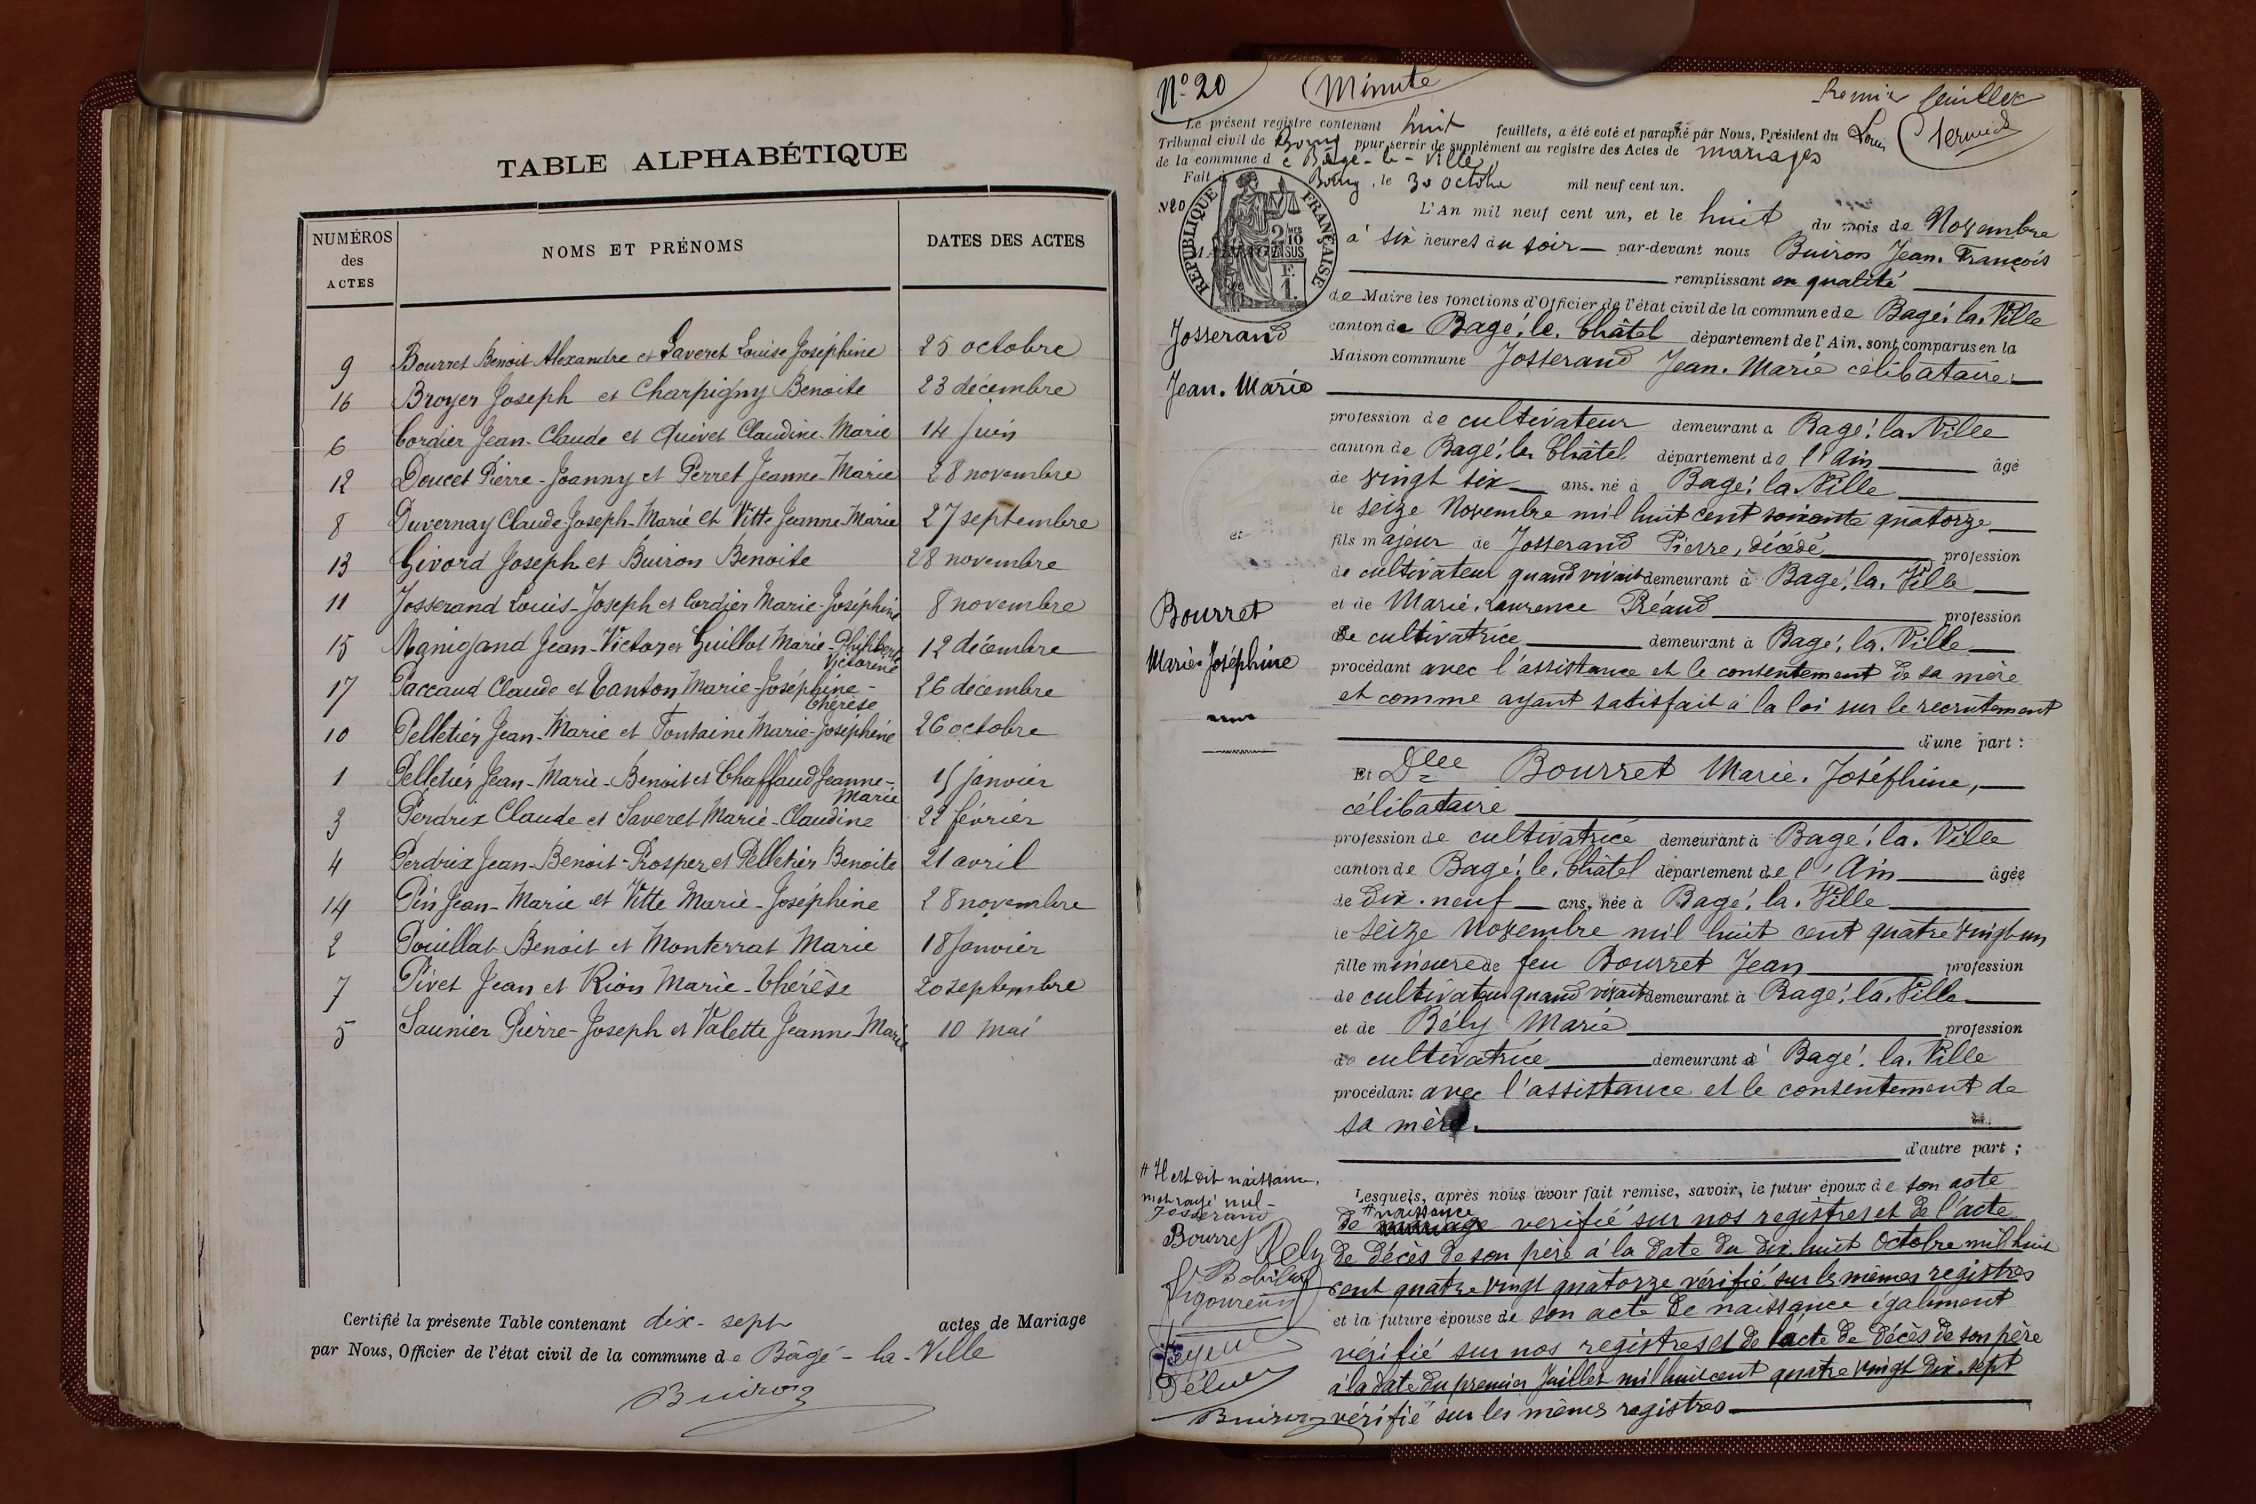 TABLE ALPHABÉTIQUE
NUMÉROS des ACTES
NOMS ET PRÉNOMS
DATES DES ACTES
9 Bourret Benoit Alexandre et Saveret Louise Joséphine 25 octobre
16 Broyer Joseph et Charpigny Benoite 23 décembre
6 Cordier Jean-Claude et Quivet Claudine-Marie 14 juin
12 Doucet Pierre-Joanny et Perret Jeanne-Marie 28 novembre
8 Duvernay Claude-Joseph-Marie et Vitte Jeanne-Marie 27 septembre
13 Givord Joseph et Buiron Benoite 28 novembre
11 Josserand Louis-Joseph et Cordier Marie-Joséphine 8 novembre
15 Manigand Jean-Victor et Guillot Marie-Philiberte
Victorine 12 décembre
17 Paccaud Claude et Canton Marie-Joséphine-
Thérèse 26 décembre
10 Pelletier Jean-Marie et Fontaine Marie-Joséphine 26 octobre
1 Pelletier Jean-Marie-Benoit et Chaffaud Jeanne-
Marie 15 janvier
3 Perdrix Claude et Saveret Marie-Claudine 22 février
4 Perdrix Jean-Benoit-Prosper et Pelletier Benoite 21 avril
14 Pin Jean-Marie et Vitte Marie-Joséphine 28 novembre
2 Pouillat Benoit et Monterrat Marie 18 Janvier
7 Pivet Jean et Rion Marie-Thérèse 20 septembre
5 Saunier Pierre-Joseph et Valette Jeanne-Marie 10 mai
Certifié la présente Table contenant dix-sept actes de Mariage
par Nous, Officier de l'état civil de la commune de Bâgé-la-Ville
Buiron
N° 20 Minute Premier feuillet
Le présent registre contenant huit feuillets, a été coté et paraphé par Nous, Président du
Tribunal civil de Bourg pour servir de supplément au registre des Actes de mariages
de la commune de Bâgé-la-Ville
Fait à Bourg, le 30 octobre mil neuf cent un.
N20
RÉPUBLIQUE FRANÇAISE
2/10 EN SUS
F. 1.
L'An mil neuf cent un, et le huit du mois de Novembre
à six heures du soir par-devant nous Buiron Jean. François
remplissant en qualité
de Maire les fonctions d'Officier de l'état civil de la commune de Bagé. la. Ville
canton de Bagé. le. Châtel département de l'Ain, sont comparus en la
Maison commune Josserand Jean. Marie célibataire
Josserand
Jean. Marie
profession de cultivateur demeurant à Bagé. la. Ville
canton de Bagé. le. Châtel département de l'Ain âgé
de vingt six ans, né à Bagé. la. Ville
le seize Novembre mil huit cent soixante quatorze
fils majeur de Josserand Pierre, décédé profession
de cultivateur quand vivait demeurant à Bagé. la. Ville
et
Bourret
Marie. Joséphine
et de Marie. Laurence Préaud profession
de cultivatrice demeurant à Bagé. la. Ville
procédant avec l'assistance et le consentement de sa mère
et comme ayant satisfait à la loi sur le recrutement
d'une part :
Et Dlle Bourret Marie. Joséphine,
célibataire
profession de cultivatrice demeurant à Bagé. la. Ville
canton de Bagé. le. Châtel département de l'Ain âgée
de dix. neuf ans, née à Bagé. la. Ville
le seize Novembre mil huit cent quatre vingt un
fille mineure de feu Bourret Jean profession
de cultivateur quand vivait demeurant à Bagé. la. Ville
et de Bély Marie profession
de cultivatrice demeurant à Bagé. la. Ville
procédant avec l'assistance et le consentement de
sa mère.
d'autre part ;
Lesquels, après nous avoir fait remise, savoir, le futur époux de son acte
# naissance
de mariage verifié sur nos registres et de l'acte
de décès de son père à la date du dix huit Octobre mil huit
cent quatre vingt quatorze vérifié sur les mêmes registres
et la future épouse de son acte de naissance également
vérifié sur nos registres et de l'acte de décès de son père
à la date du premier Juillet mil huit cent quatre vingt dix. sept
vérifié sur les mêmes registres
# Il est dit naissance.
mot rayé nul-
Josserand
Bourret Bely
Buiron